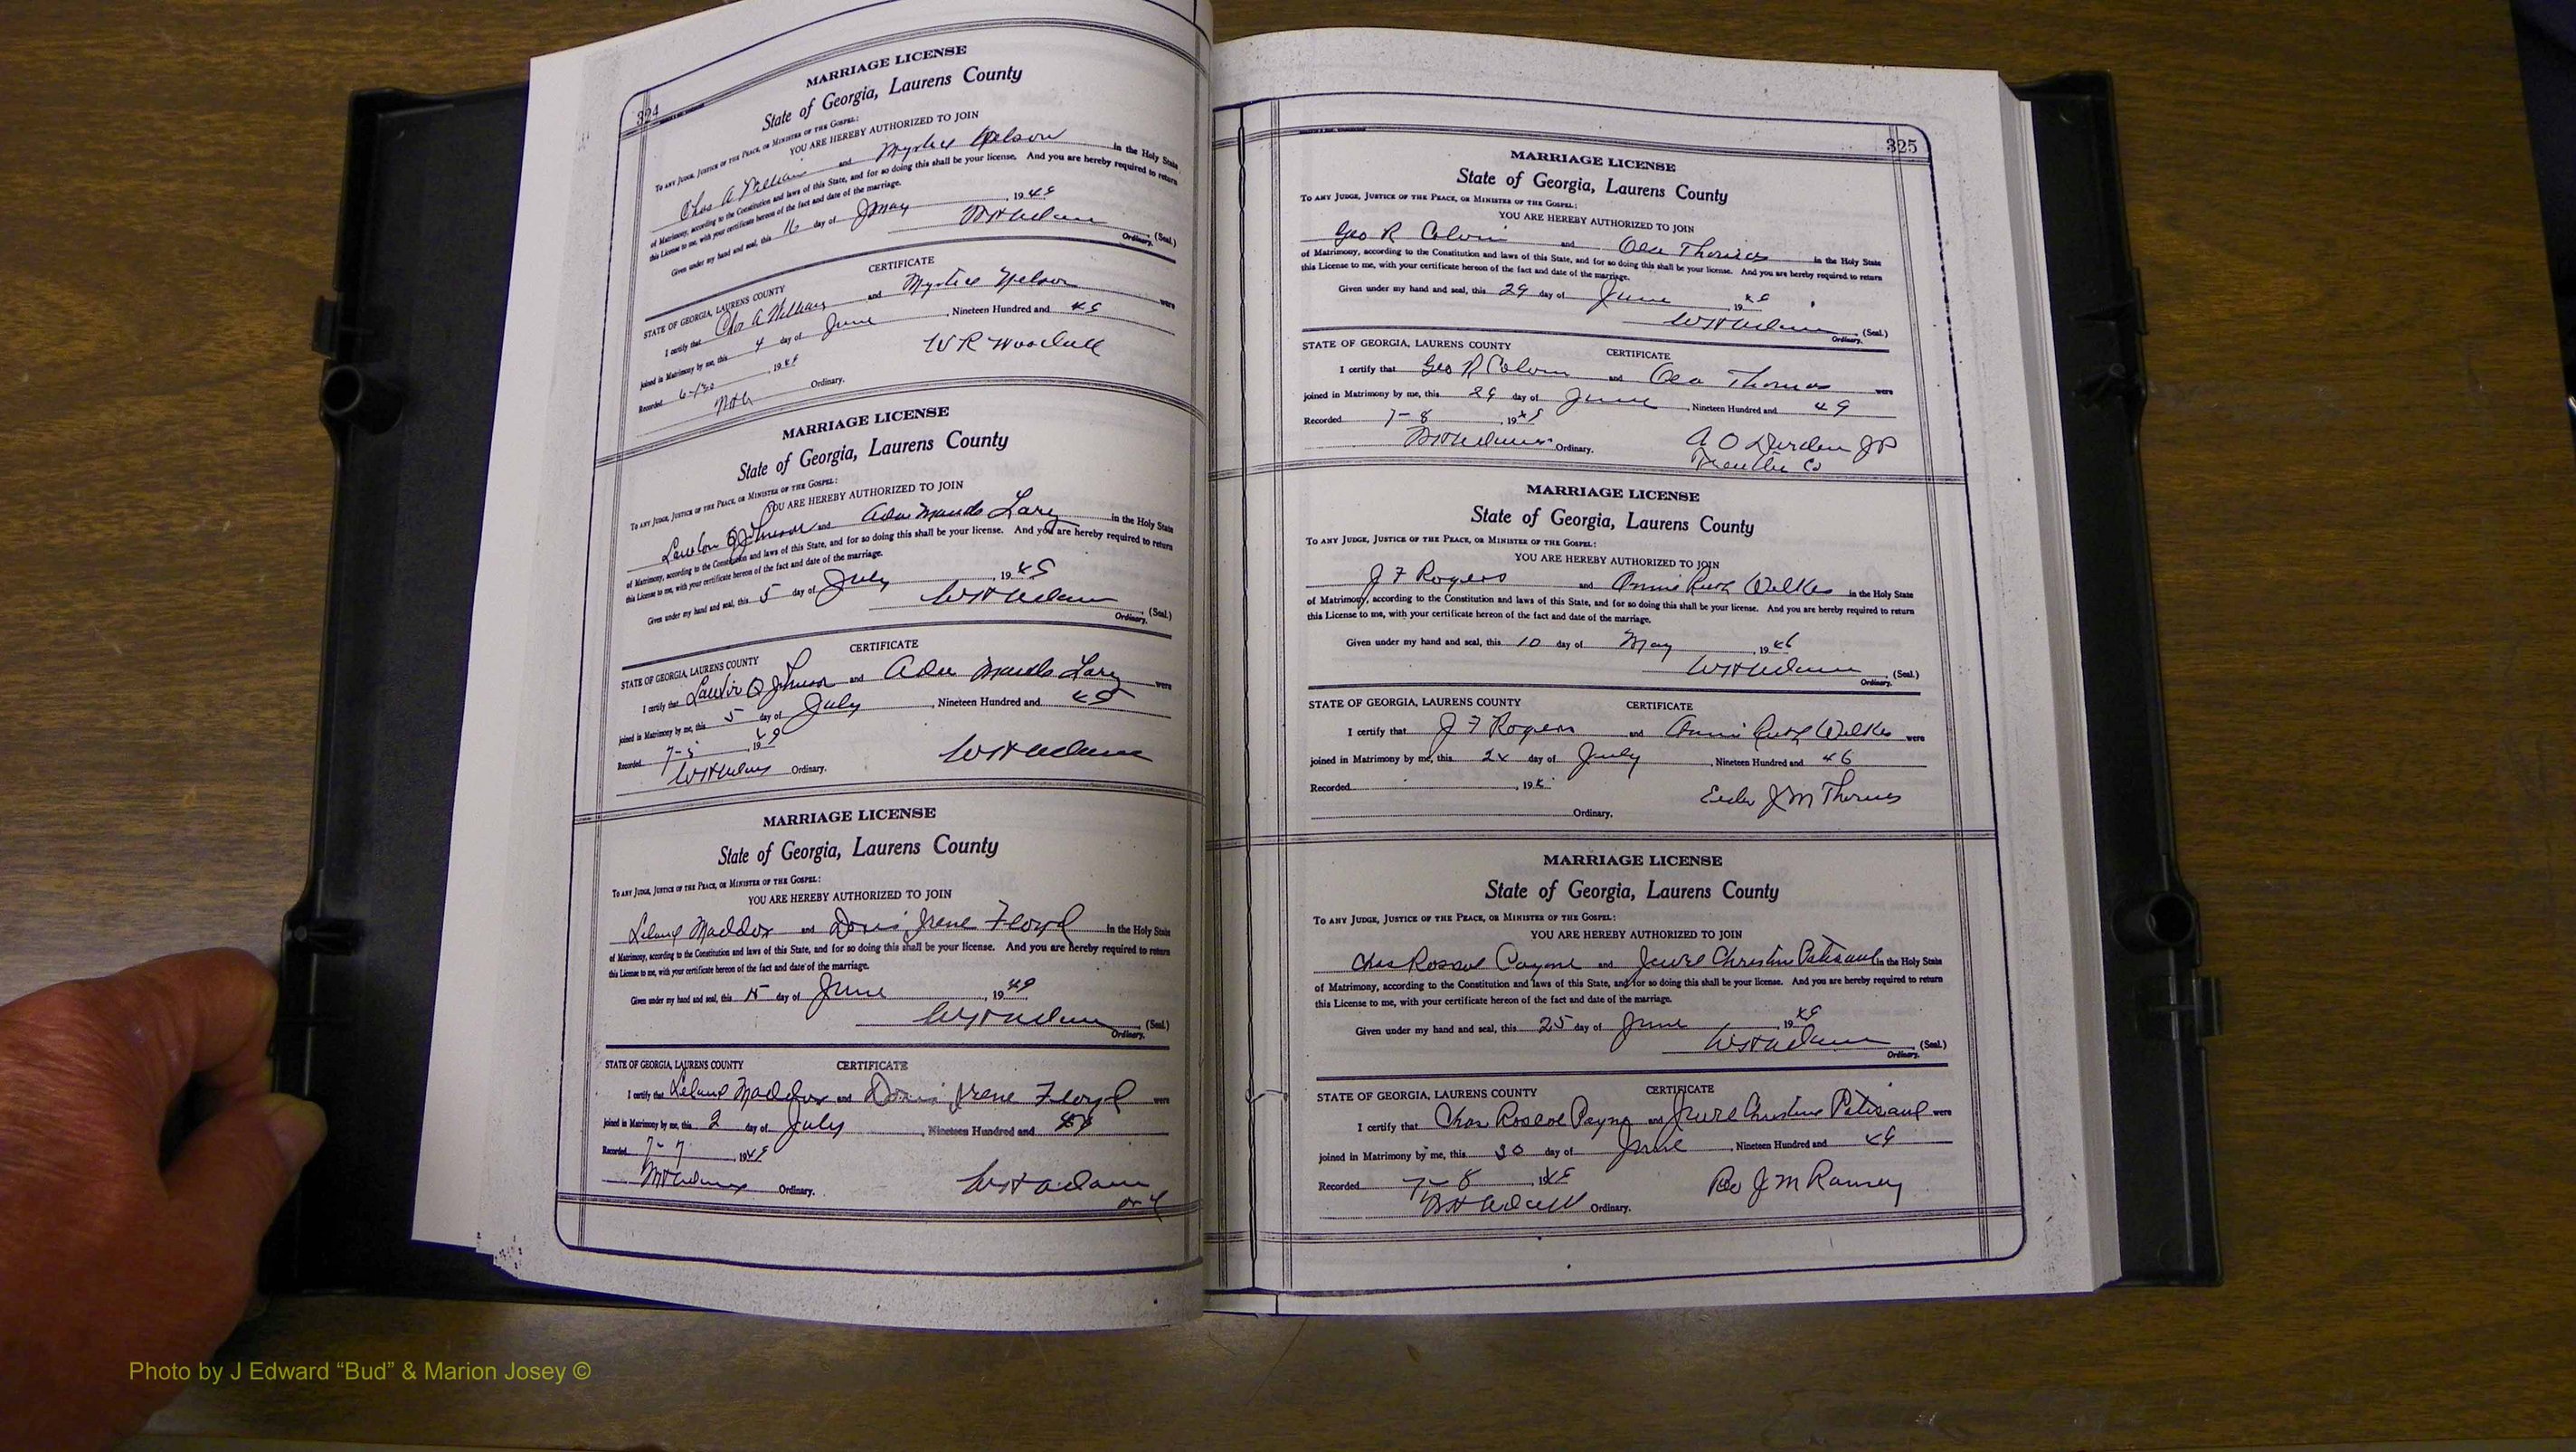 324
MARRIAGE LICENSE
State of Georgia, Laurens County
To any Judge, Justice of the Peace, or Minister of the Gospel:
YOU ARE HEREBY AUTHORIZED TO JOIN
Chas A and Nelson in the Holy State
of Matrimony, according to the Constitution and laws of this State, and for so doing this shall be your license. And you are hereby required to return
this License to me, with your certificate hereof of the fact and date of the marriage.
Given under my hand and seal, this 16 day of May, 1949
(Seal.)
Ordinary.
CERTIFICATE
STATE OF GEORGIA, LAURENS COUNTY
I certify that Chas A and Nelson were
joined in Matrimony by me, this 4 day of June, Nineteen Hundred and 49
Recorded 1949
W R Woodall
Ordinary.
MARRIAGE LICENSE
State of Georgia, Laurens County
To any Judge, Justice of the Peace, or Minister of the Gospel:
YOU ARE HEREBY AUTHORIZED TO JOIN
Johnson and Ada Maude in the Holy State
of Matrimony, according to the Constitution and laws of this State, and for so doing this shall be your license. And you are hereby required to return
this License to me, with your certificate hereof of the fact and date of the marriage.
Given under my hand and seal, this 5 day of July, 1949
WH Adams (Seal.)
Ordinary.
CERTIFICATE
STATE OF GEORGIA, LAURENS COUNTY
I certify that Q Johnson and Ada Maude were
joined in Matrimony by me, this 5 day of July, Nineteen Hundred and 49
Recorded 7-5, 1949
WH Adams Ordinary.
WH Adams
MARRIAGE LICENSE
State of Georgia, Laurens County
To any Judge, Justice of the Peace, or Minister of the Gospel:
YOU ARE HEREBY AUTHORIZED TO JOIN
Leland Maddox and Doris Irene Floyd in the Holy State
of Matrimony, according to the Constitution and laws of this State, and for so doing this shall be your license. And you are hereby required to return
this License to me, with your certificate hereof of the fact and date of the marriage.
Given under my hand and seal, this day of June, 1949
WH Adams (Seal.)
Ordinary.
STATE OF GEORGIA, LAURENS COUNTY CERTIFICATE
I certify that Leland Maddox and Doris Irene Floyd were
joined in Matrimony by me, this 2 day of July, Nineteen Hundred and 49
Recorded 7-7, 1949
WH Adams Ordinary.
WH Adams
325
MARRIAGE LICENSE
State of Georgia, Laurens County
To any Judge, Justice of the Peace, or Minister of the Gospel:
YOU ARE HEREBY AUTHORIZED TO JOIN
Geo R Colvin and Thomas in the Holy State
of Matrimony, according to the Constitution and laws of this State, and for so doing this shall be your license. And you are hereby required to return
this License to me, with your certificate hereon of the fact and date of the marriage.
Given under my hand and seal, this 29 day of June, 1949
WH Adams (Seal.)
Ordinary.
STATE OF GEORGIA, LAURENS COUNTY CERTIFICATE
I certify that Geo R Colvin and Thomas were
joined in Matrimony by me, this 29 day of June, Nineteen Hundred and 49
Recorded 7-8, 1949
WH Adams Ordinary.
A O Durden JP
Co
MARRIAGE LICENSE
State of Georgia, Laurens County
To any Judge, Justice of the Peace, or Minister of the Gospel:
YOU ARE HEREBY AUTHORIZED TO JOIN
J F Rogers and Annie Ruth Wilkes in the Holy State
of Matrimony, according to the Constitution and laws of this State, and for so doing this shall be your license. And you are hereby required to return
this License to me, with your certificate hereon of the fact and date of the marriage.
Given under my hand and seal, this 10 day of May, 1946
WH Adams (Seal.)
Ordinary.
STATE OF GEORGIA, LAURENS COUNTY CERTIFICATE
I certify that J F Rogers and Annie Ruth Wilkes were
joined in Matrimony by me, this 24 day of July, Nineteen Hundred and 46
Recorded, 194
J M Thomas
Ordinary.
MARRIAGE LICENSE
State of Georgia, Laurens County
To any Judge, Justice of the Peace, or Minister of the Gospel:
YOU ARE HEREBY AUTHORIZED TO JOIN
Chas Roscoe Payne and Jewel Christine in the Holy State
of Matrimony, according to the Constitution and laws of this State, and for so doing this shall be your license. And you are hereby required to return
this License to me, with your certificate hereon of the fact and date of the marriage.
Given under my hand and seal, this 25 day of June, 1949
WH Adams (Seal.)
Ordinary.
STATE OF GEORGIA, LAURENS COUNTY CERTIFICATE
I certify that Chas Roscoe Payne and Jewel Christine were
joined in Matrimony by me, this 30 day of June, Nineteen Hundred and 49
Recorded 7-8, 1949
Ordinary.
Rev J M Ramsey
Photo by J Edward “Bud” & Marion Josey ©